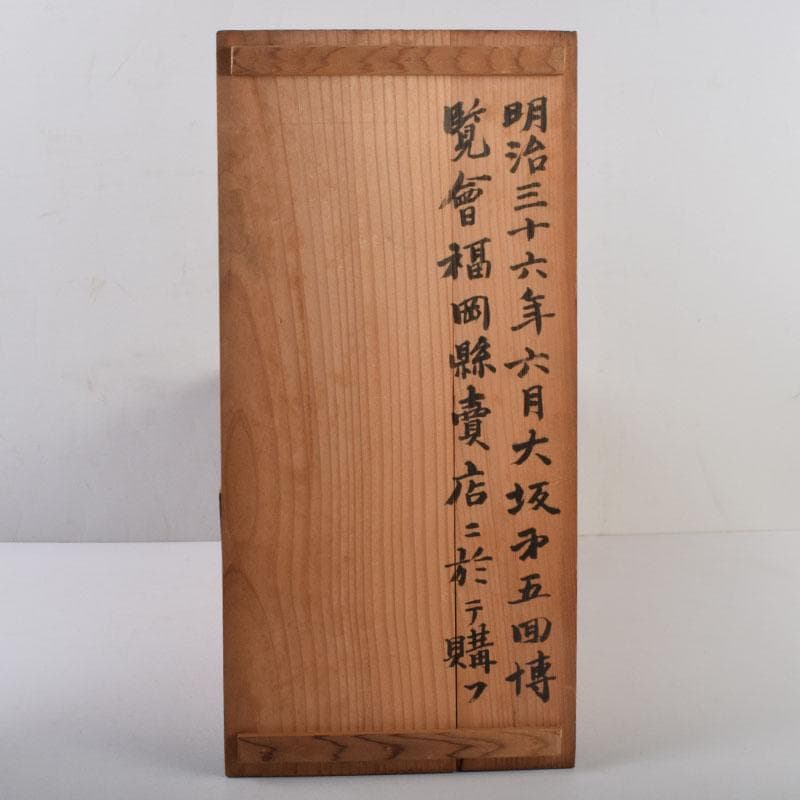 明治三十六年六月大坂㐧五回博
覧會福岡縣賣店ニ於テ購フ